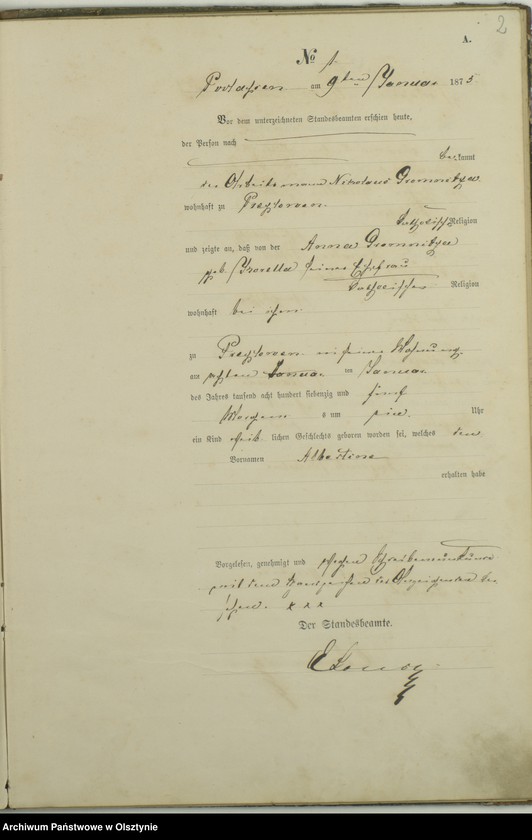 2
A.
No 1.
am 9ten Januar 1875
Vor dem unterzeichneten Standesbeamten erschien heute,
der Person nach
bekannt
der Arbeitsmann Nikolaus
wohnhaft zu
katholischer Religion
und zeigte an, daß von der Anna
geb. seiner Ehefrau
katholischer Religion
wohnhaft bei ihm
zu in seiner Wohnung
am achten Januar im Januar
des Jahres tausend acht hundert siebenzig und fünf
Morgens s um ein Uhr
ein Kind weib lichen Geschlechts geboren worden sei, welches den
Vornamen Albertine
erhalten habe
Vorgelesen, genehmigt und wegen Schreibensunkunde
mit dem Handzeichen des Anzeigenden ver
sehen. x x x
Der Standesbeamte.
Archiwum Państwowe w Olsztynie